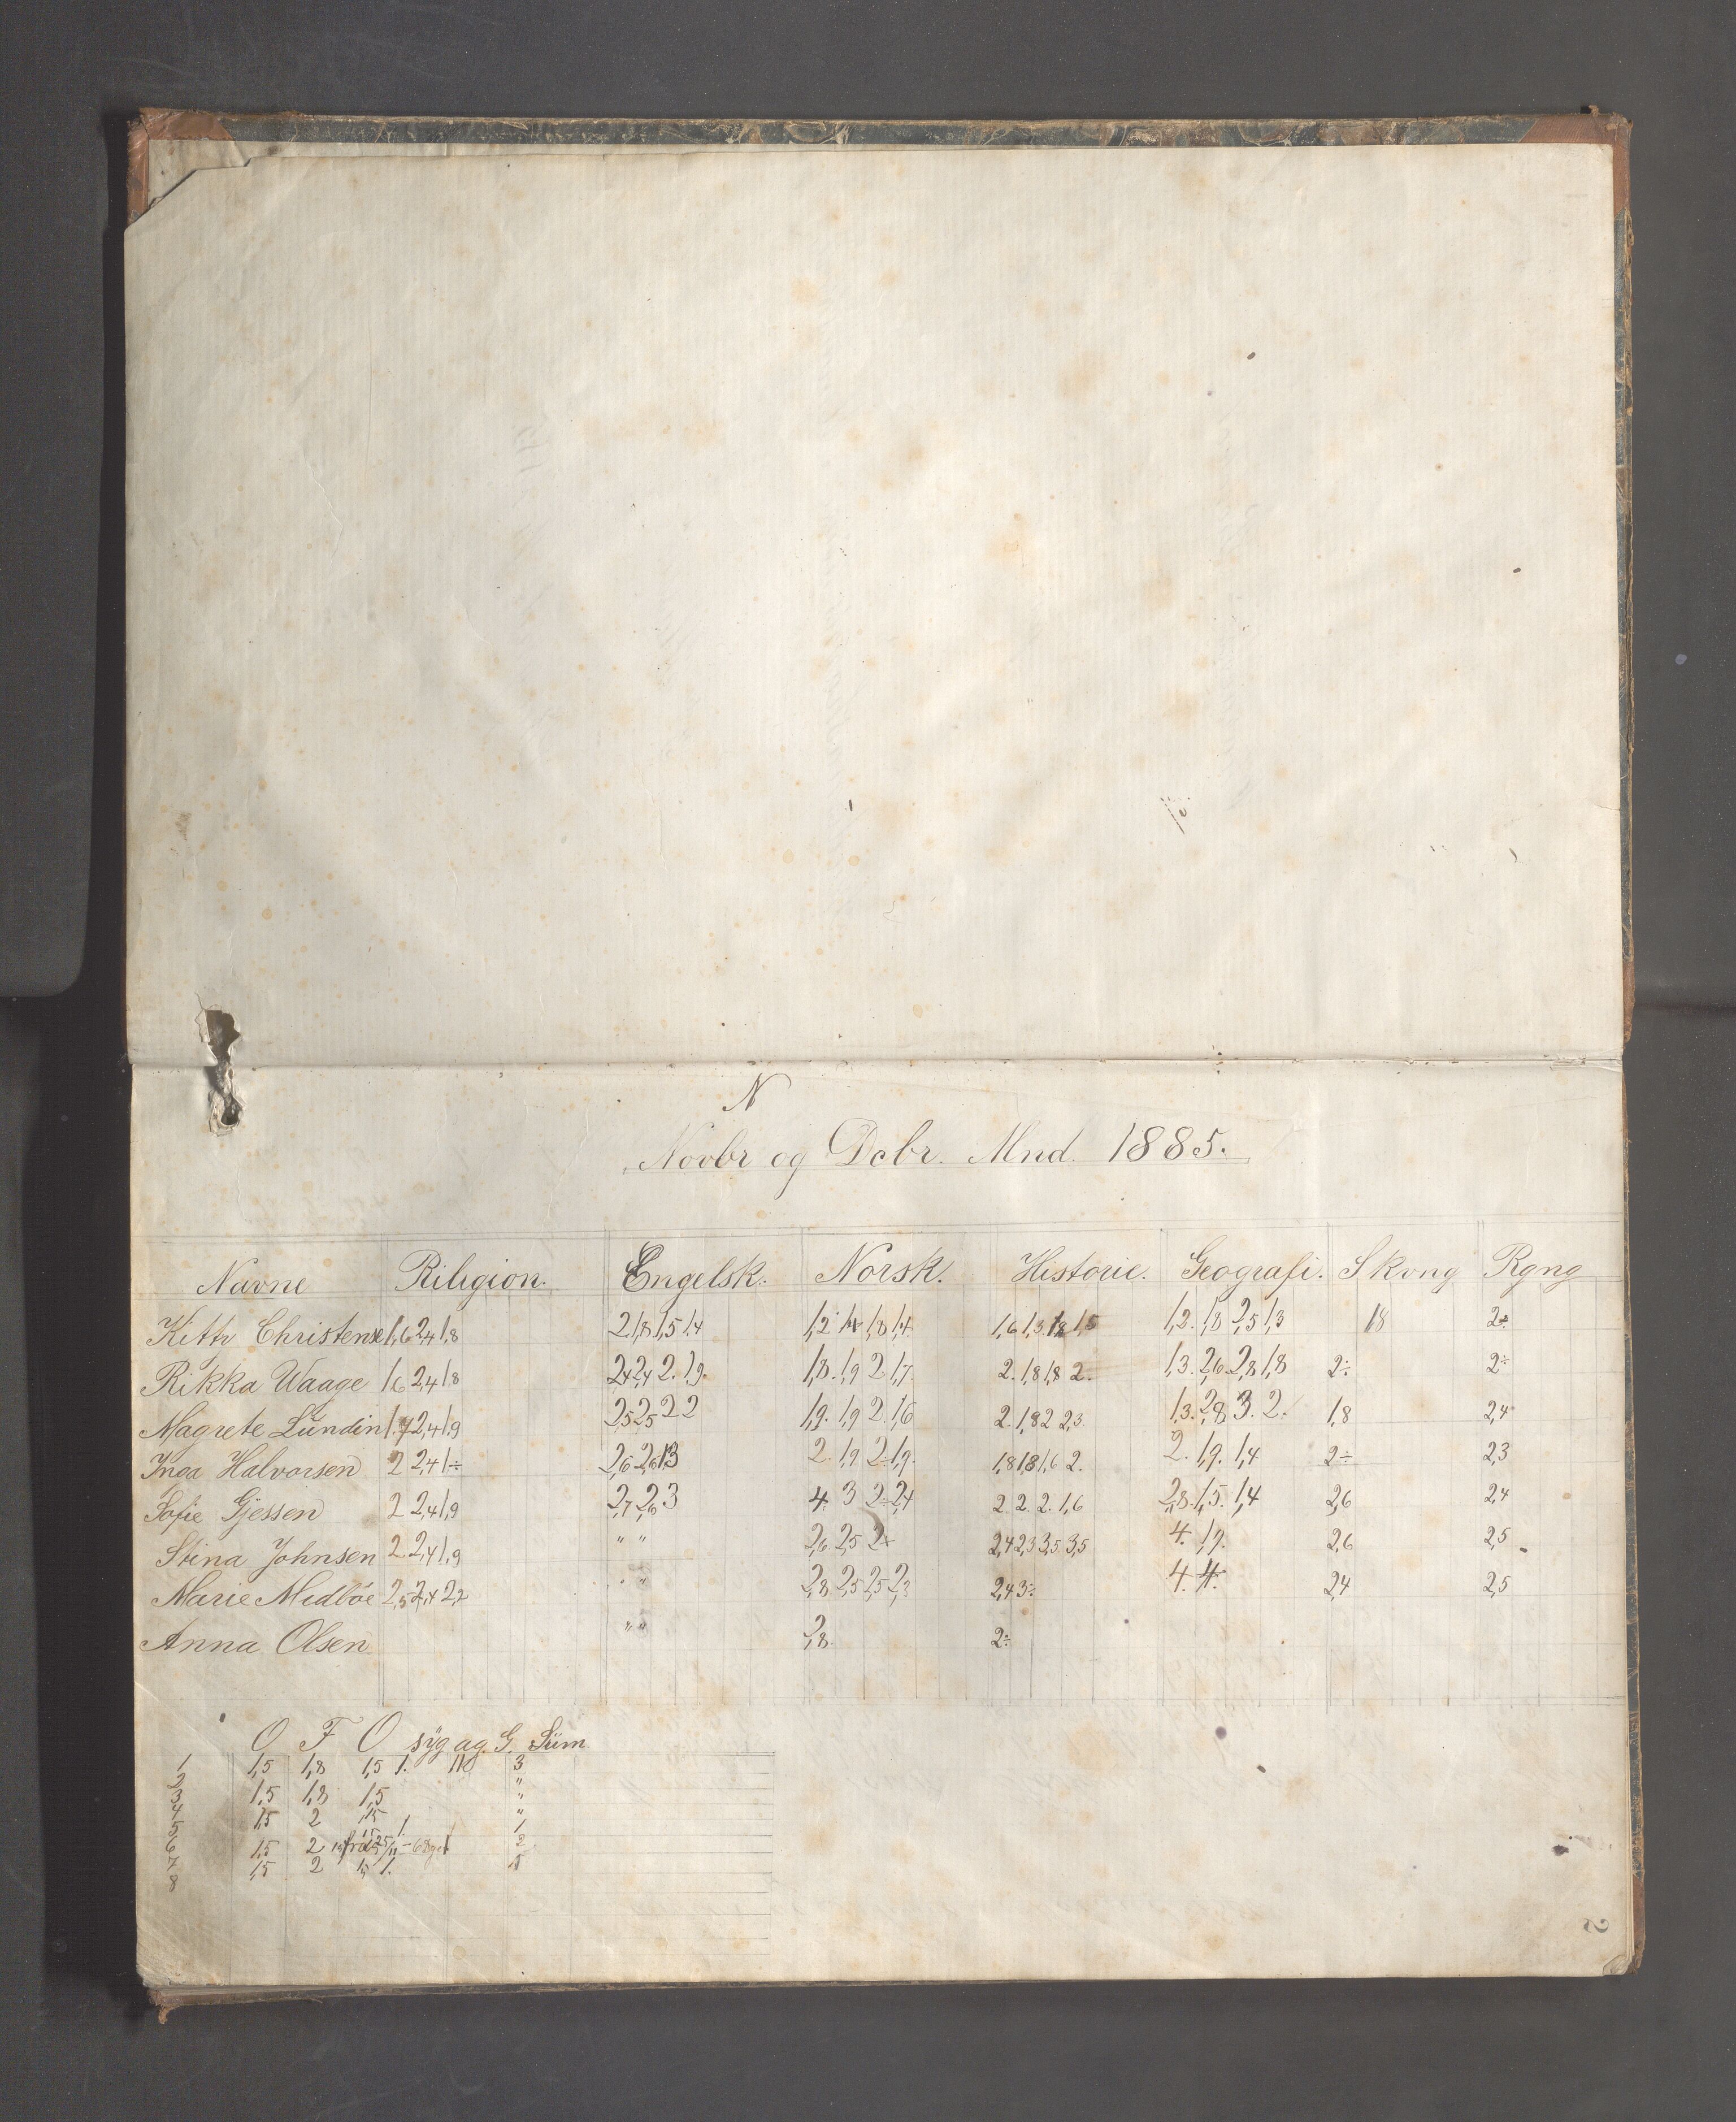 N
Novbr og Dcbr. Mnd. 1885.
Navne Riligion. Engelsk. Norsk. Historie. Geografi. Skvng Rgng
Kitty Christense 1,6 2,4 1,8 2 1,8 1,5 1,4 1,2 1,8 1,4 1,6 1,3 1,8 1,5 1,2. 1,8 2,5 1,3 1,8 2÷
Rikka Waage 1,6 2,4 1,8 2,4 2,4 2. 1,9. 1,8. 1,9 2 1,7. 2. 1,8 1,8 2. 1,3. 2,6. 2,8 1,8 2÷ 2÷
Magrete Lundin 1,7 2,4 1,9 2,5 2,5 2 2 1,9. 1,9 2. 1,6 2. 1,8 2 2,3 1,3. 2,8 3. 2. 1,8 2,4
Inga Halvorsen 2 2,4 1÷ 2,6 2,6 3 2. 1,9 2 1,9. 1,8 1,8 1,6 2. 2. 1,9. 1,4 2÷ 2,3
Sofie Gjessen 2 2,4 1,9 2,7 2,6 3 4. 3 2÷ 2,4 2. 2. 2. 1,6 2,8. 1,5. 1,4 2,6 2,4
Stina Johnsen 2 2,4 1,9 " " 2,6 2,5 2÷ 2,4 2,3 3,5 3,5 4. 1,9. 2,6 2,5
Marie Midböe 2,5 2,4 2,2 " " 2,8 2,5 2,5 2,3 2,4 3÷ 4. 4. 2,4 2,5
Anna Olsen " " 2,8. 2÷
O F O syg ag. G. Süm
1 1,5 1,8 1,5 1. 3
2 1,5 1,8 1,5 "
3 "
4 1,5 2 1,5 "
5 1. 1
6 1,5 2 2
7 1,5 2 1,5 1. 5
8
2